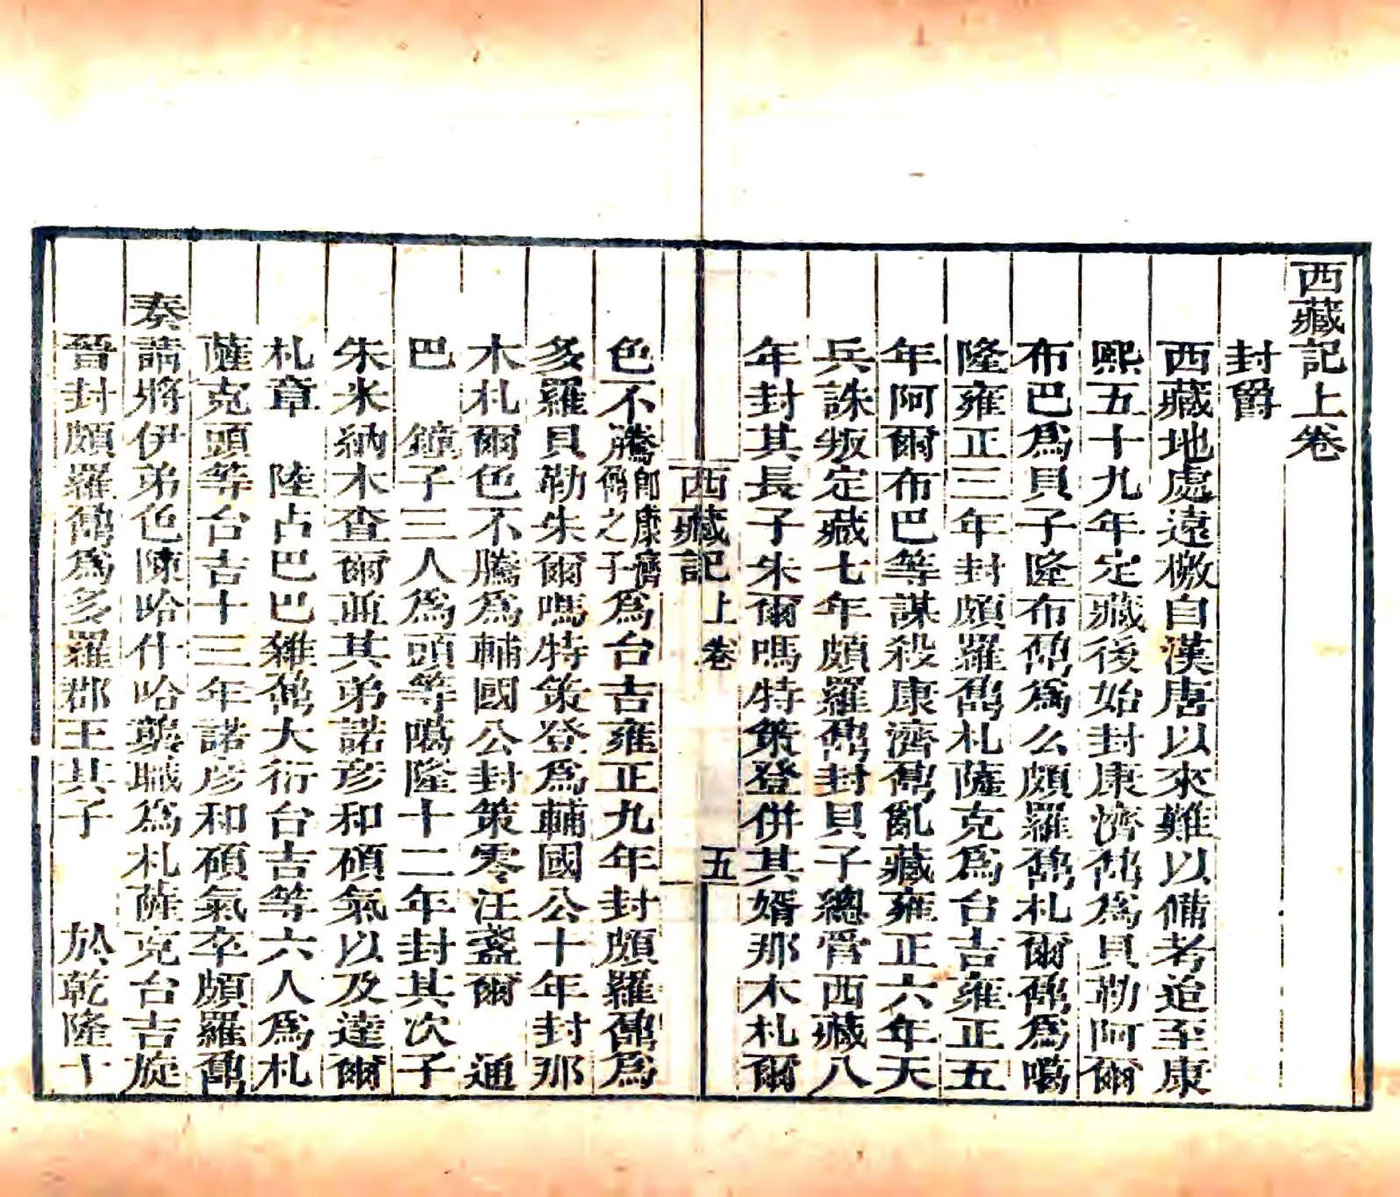 西藏記上卷
封爵
西藏地處遠檄自漢唐以來難以備考迨至康
熙五十九年定藏後始封康濟鼐爲貝勒阿爾
布巴爲貝子隆布鼐爲么頗羅鼐札爾鼐爲噶
隆雍正三年封頗羅鼐札薩克爲台吉雍正五
年阿爾布巴等謀殺康濟鼐亂藏雍正六年天
兵誅叛定藏七年頗羅鼐封貝子總管西藏八
年封其長子朱爾嗎特策登併其婿那木札爾
西藏記 上卷 五
色不騰卽康濟鼐之子爲台吉雍正九年封頗羅鼐爲
多羅貝勒朱爾嗎特策登爲輔國公十年封那
木札爾色不騰爲輔國公封策零汪盞爾 通
巴 鐘子三人爲頭等噶隆十二年封其次子
朱米納木查爾並其弟諾彥和碩氣以及達爾
札章 陸占巴巴雜鼐大衍台吉等六人爲札
薩克頭等台吉十三年諾彥和碩氣卒頗羅鼐
奏請將伊弟色陳哈什哈襲職爲札薩克台吉旋
晉封頗羅鼐爲多羅郡王其子 於乾隆十